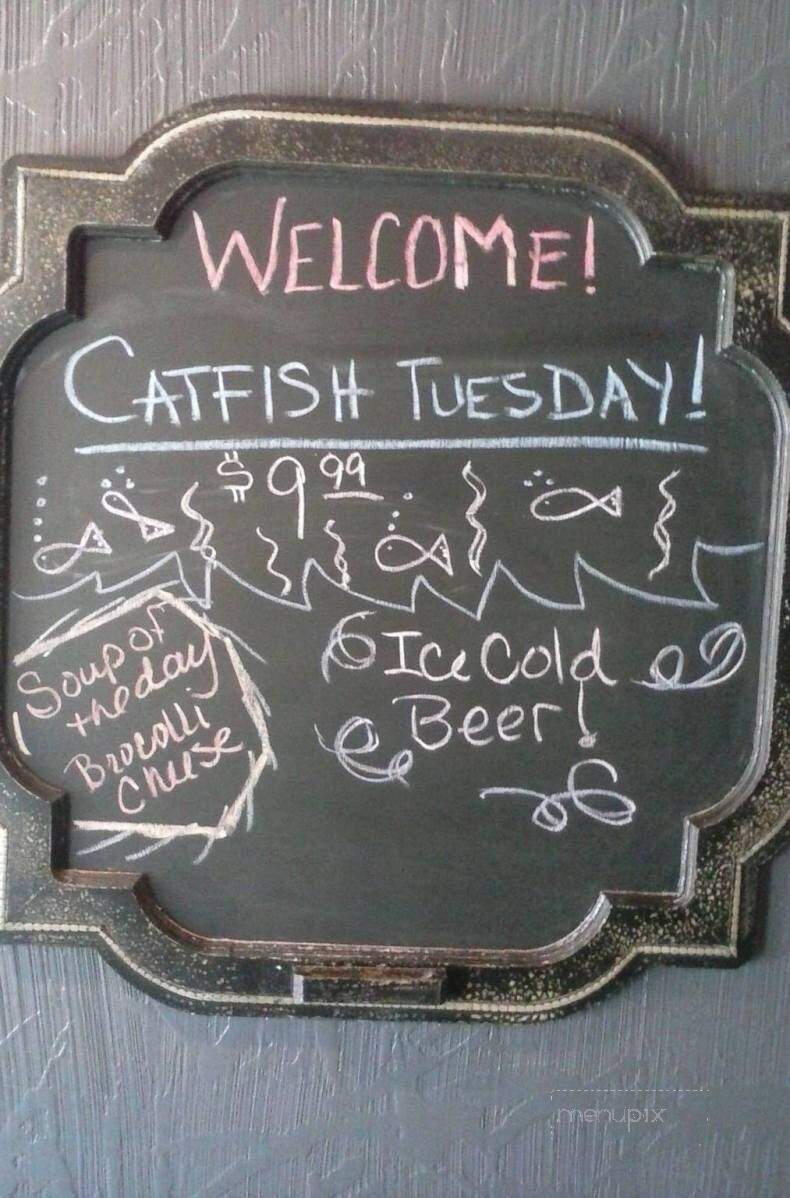 WELCOME!
CATFISH TUESDAY!
$9.99
Soup of
the day
Brocolli
Cheese
Ice Cold
Beer!
menupix